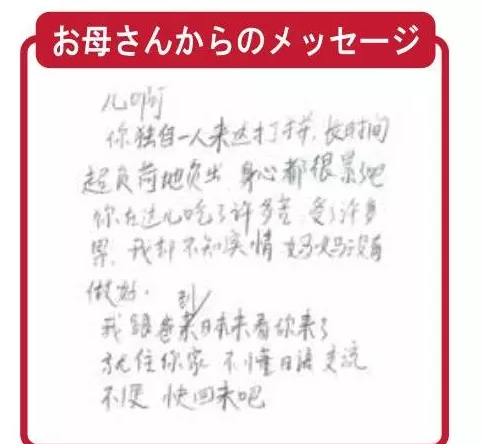 お母さんからのメッセージ
儿啊
你独自一人来这打拼，长时间
超负荷地负出 身心都很累吧
你在这儿吃了许多苦 受了许多
累，我却不知实情 妈妈没有
做好．
我跟爸来到日本来看你来了
就住你家 不懂日语 交流
不便 快回来吧